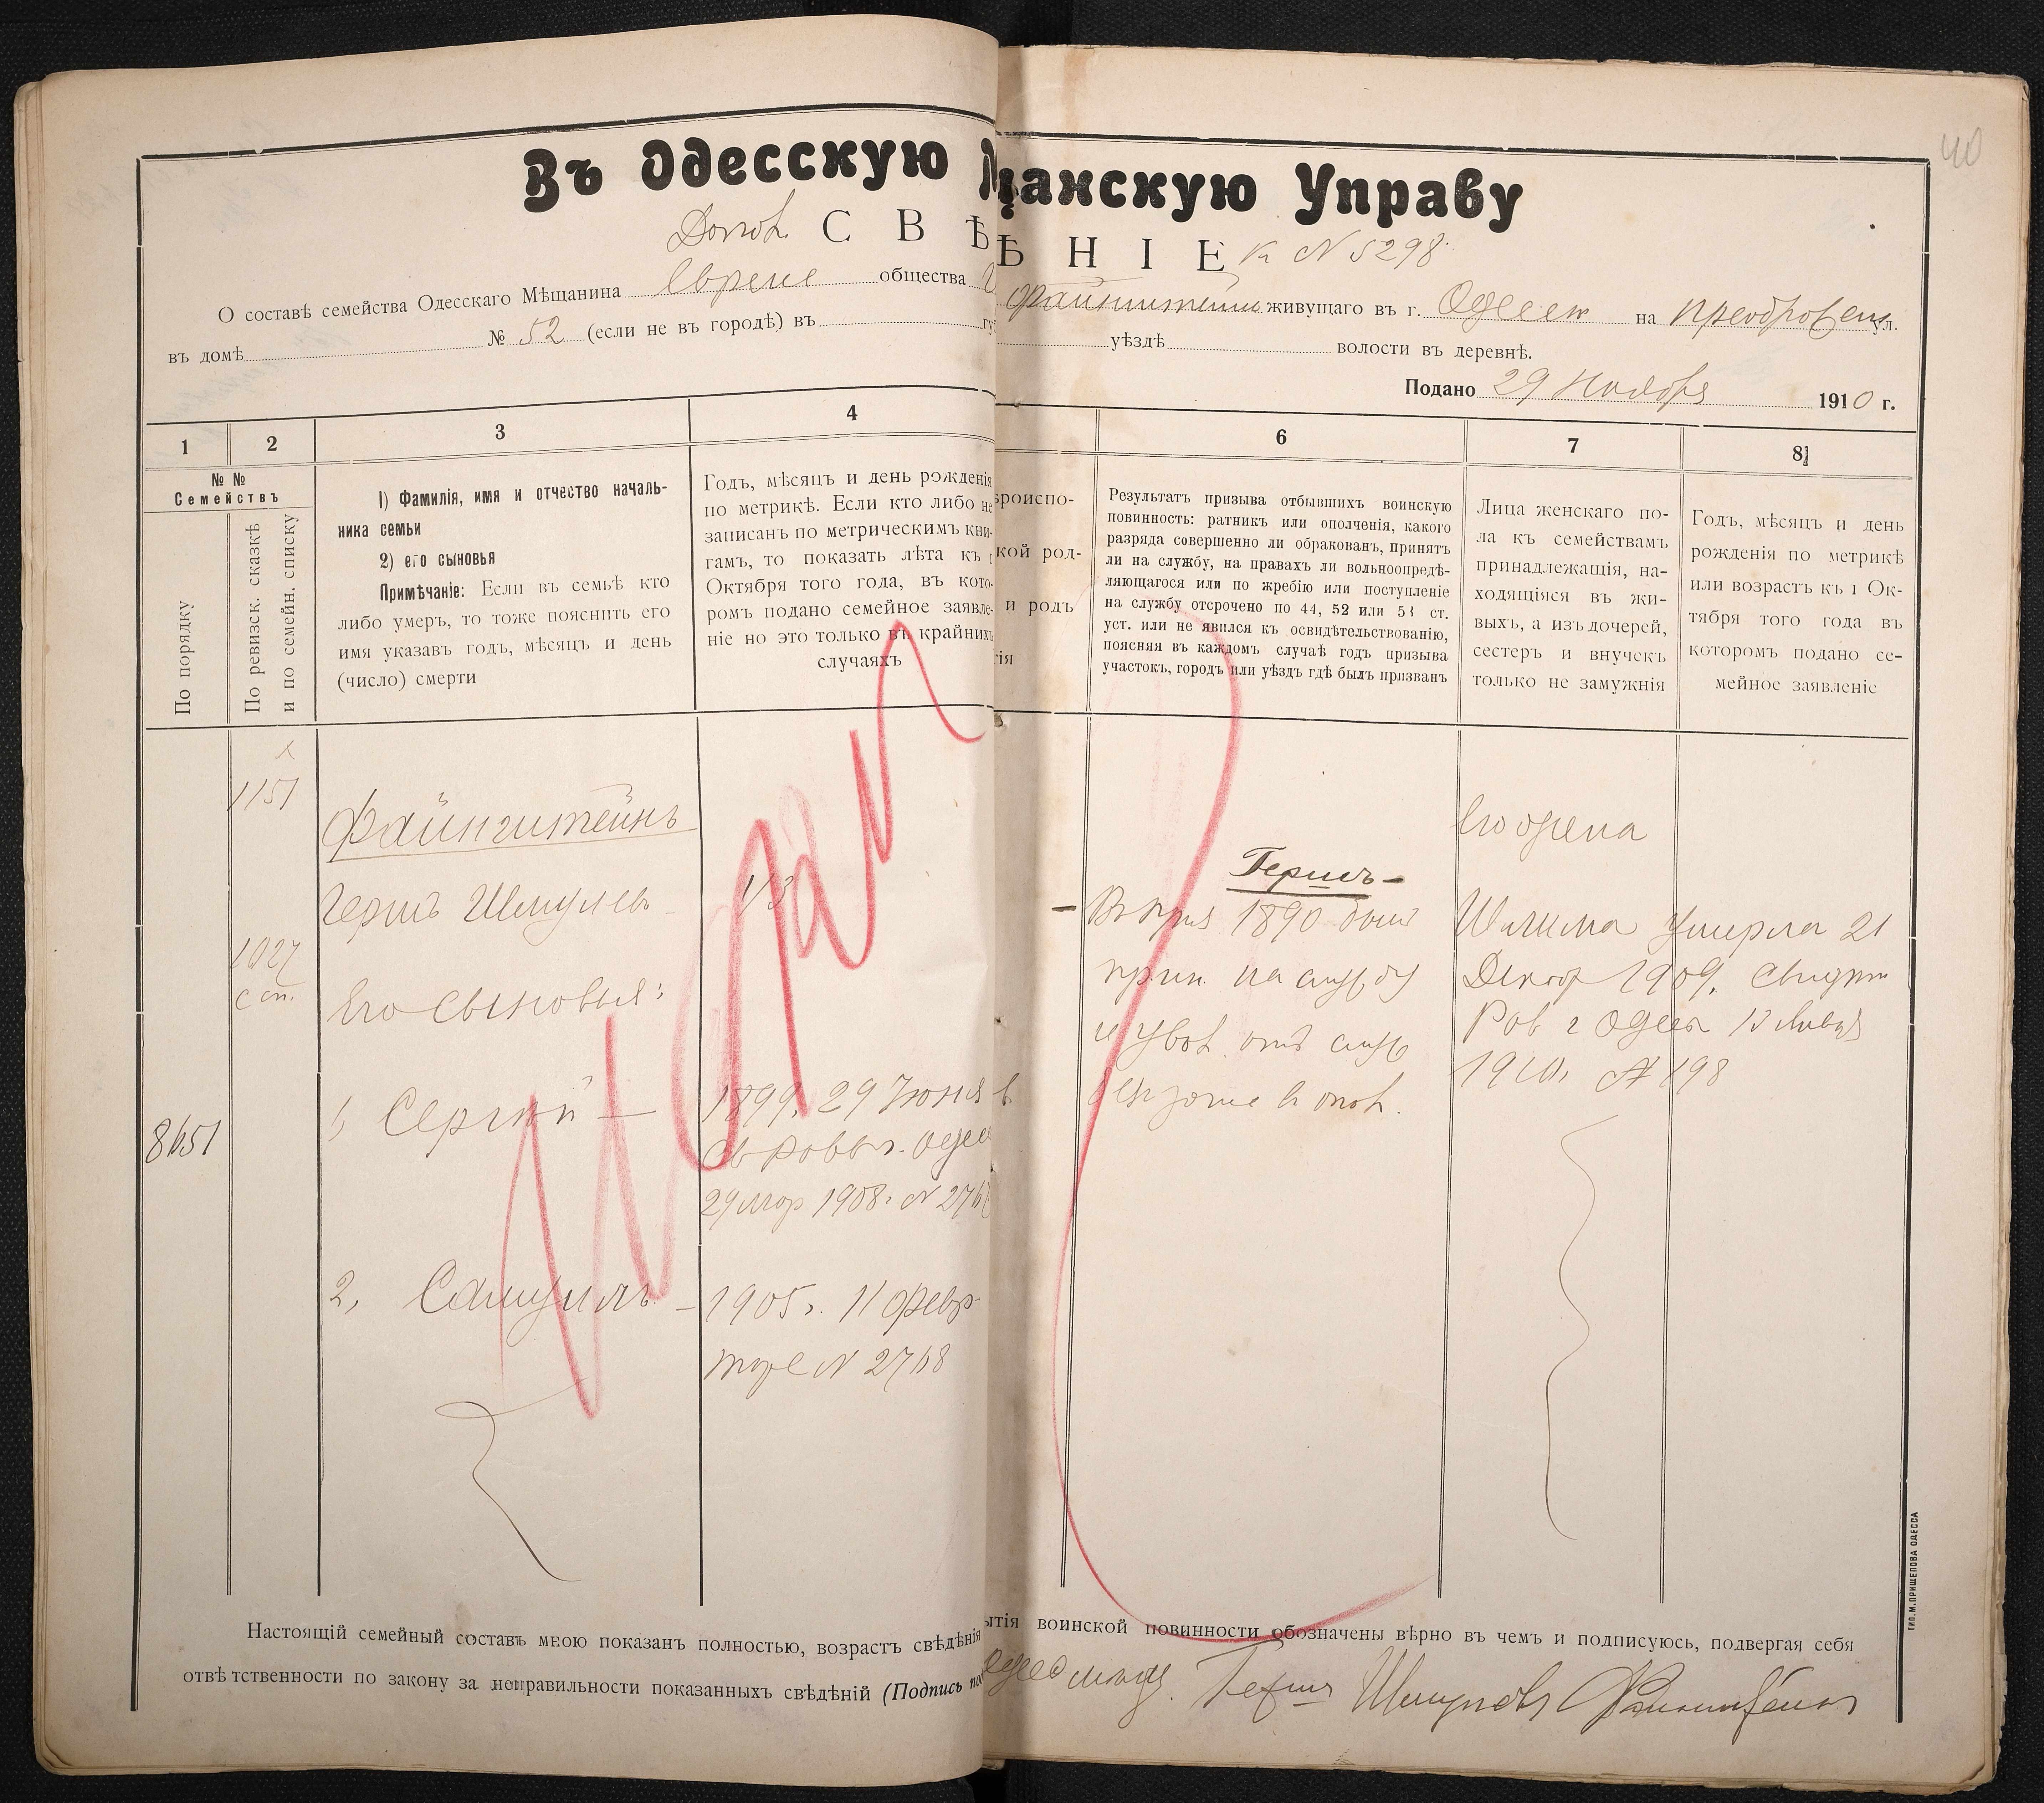 40
Въ Одесскую М
щанскую Управу
Допол. СВѢ
ѢНІЕ к N 5298
О составѣ семейства Одесскаго Мѣщанина Евреис общества
Файнштейна живущаго въ г. Одессѣ на Преображен ул.
въ домѣ № 52 (если не въ городѣ) въ гу
уѣздѣ волости въ деревнѣ.
Подано 29 Ноября 1910 г.
1 2 3 4
6 7 8
№ №
Семействъ
По порядку
По ревизск. сказкѣ
и по семейн. списку
1) Фамилія, имя и отчество началь-
ника семьи
2) его сыновья
Примѣчаніе: Если въ семьѣ кто
либо умеръ, то тоже пояснить его
имя указавъ годъ, мѣсяцъ и день
(число) смерти
Годъ, мѣсяцъ и день рожденія
по метрикѣ. Если кто либо не
записанъ по метрическимъ кни-
гамъ, то показать лѣта къ 1
Октября того года, въ кото-
ромъ подано семейное заявле-
ніе но это только въ крайнихъ
случаяхъ
ѣроиспо-
кой род-
и родъ
тія
Результатъ призыва отбывшихъ воинскую
повинность: ратникъ или ополченія, какого
разряда совершенно ли обракованъ, принятъ
ли на службу, на правахъ ли вольноопредѣ-
ляющагося или по жребію или поступленіе
на службу отсрочено по 44, 52 или 53 ст.
уст. или не явился къ освидѣтельствованію,
поясняя въ каждомъ случаѣ годъ призыва
участокъ, городъ или уѣздъ гдѣ былъ призванъ
Лица женскаго по-
ла къ семействамъ
принадлежащія, на-
ходящіяся въ жи-
выхъ, а изъ дочерей,
сестеръ и внучекъ
только не замужнія
Годъ, мѣсяцъ и день
рожденія по метрикѣ
или возрастъ къ 1 Ок-
тября того года въ
которомъ подано се-
мейное заявленіе
1151
Файнштейнъ
Гершъ Шмулевъ
1027
с сп.
Его сыновья:
8651
1, Сергѣй — 1899, 29 Іюня в
Св Равв г. Одес
29 мар 1908. N 2767
2, Самуилъ — 1905 г. 11 февр
тоже N 2768
Гершъ —
— В приз 1890 был
прин. на службу
и увол. отъ служ
Его жена
умерла 21
Декаб 1909, свидѣт
Рав г Одессы 13 Января
1910, N 198
Настоящій семейный составъ мною показанъ полностью, возрастъ свѣдѣнія
ытія воинской повинности обозначены вѣрно въ чемъ и подписуюсь, подвергая себя
отвѣтственности по закону за неправильности показанныхъ свѣдѣній (Подпись по
Одес мѣщ. Гершъ Шмулевъ Файнштейнъ
ТИП. М. ПРИЩЕПОВА ОДЕССА